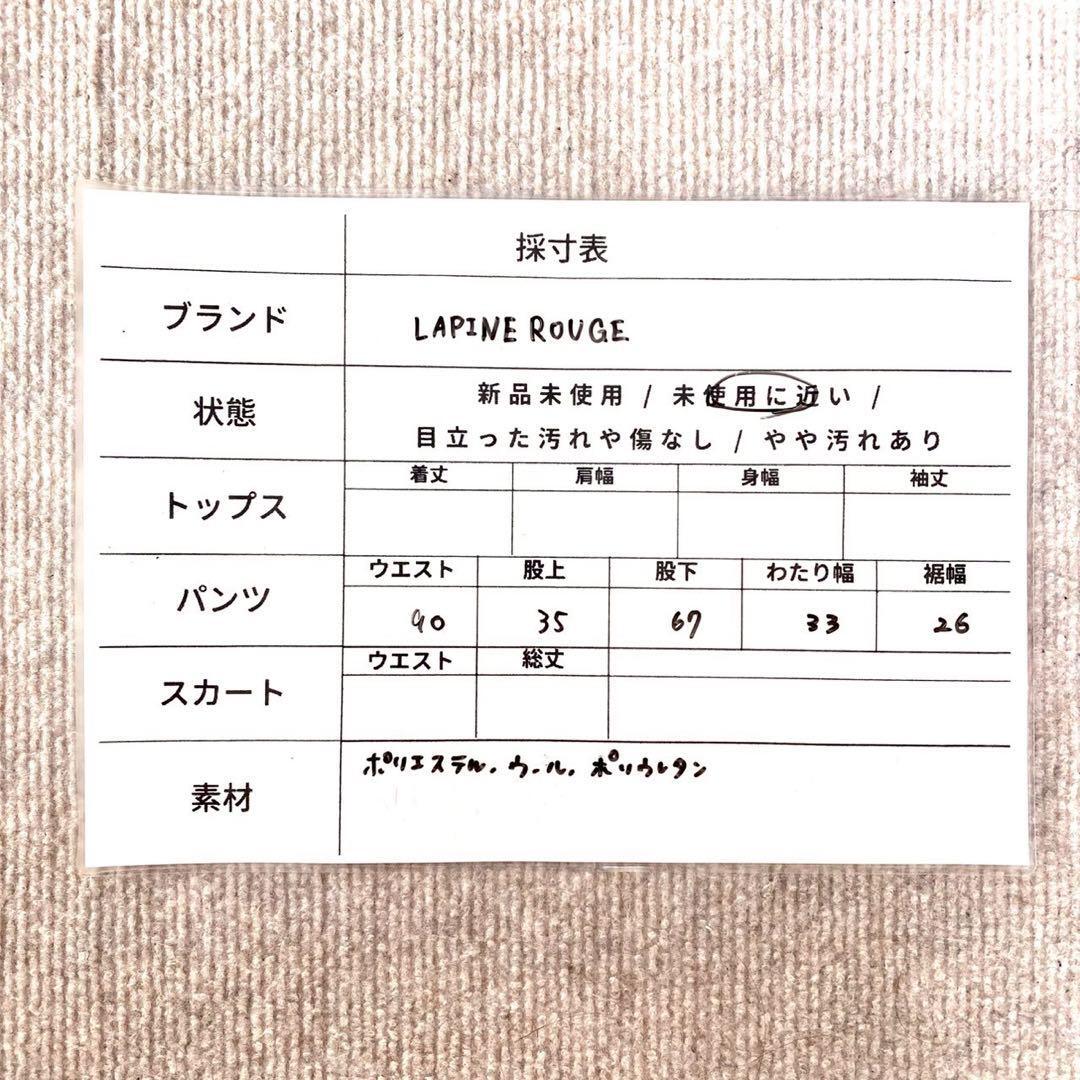 採寸表
ブランド LAPINE ROUGE
状態 新品未使用 / 未使用に近い /
目立った汚れや傷なし / やや汚れあり
トップス 着丈 肩幅 身幅 袖丈
パンツ ウエスト 股上 股下 わたり幅 裾幅
90 35 67 33 26
スカート ウエスト 総丈
素材 ポリエステル、ウール、ポリウレタン